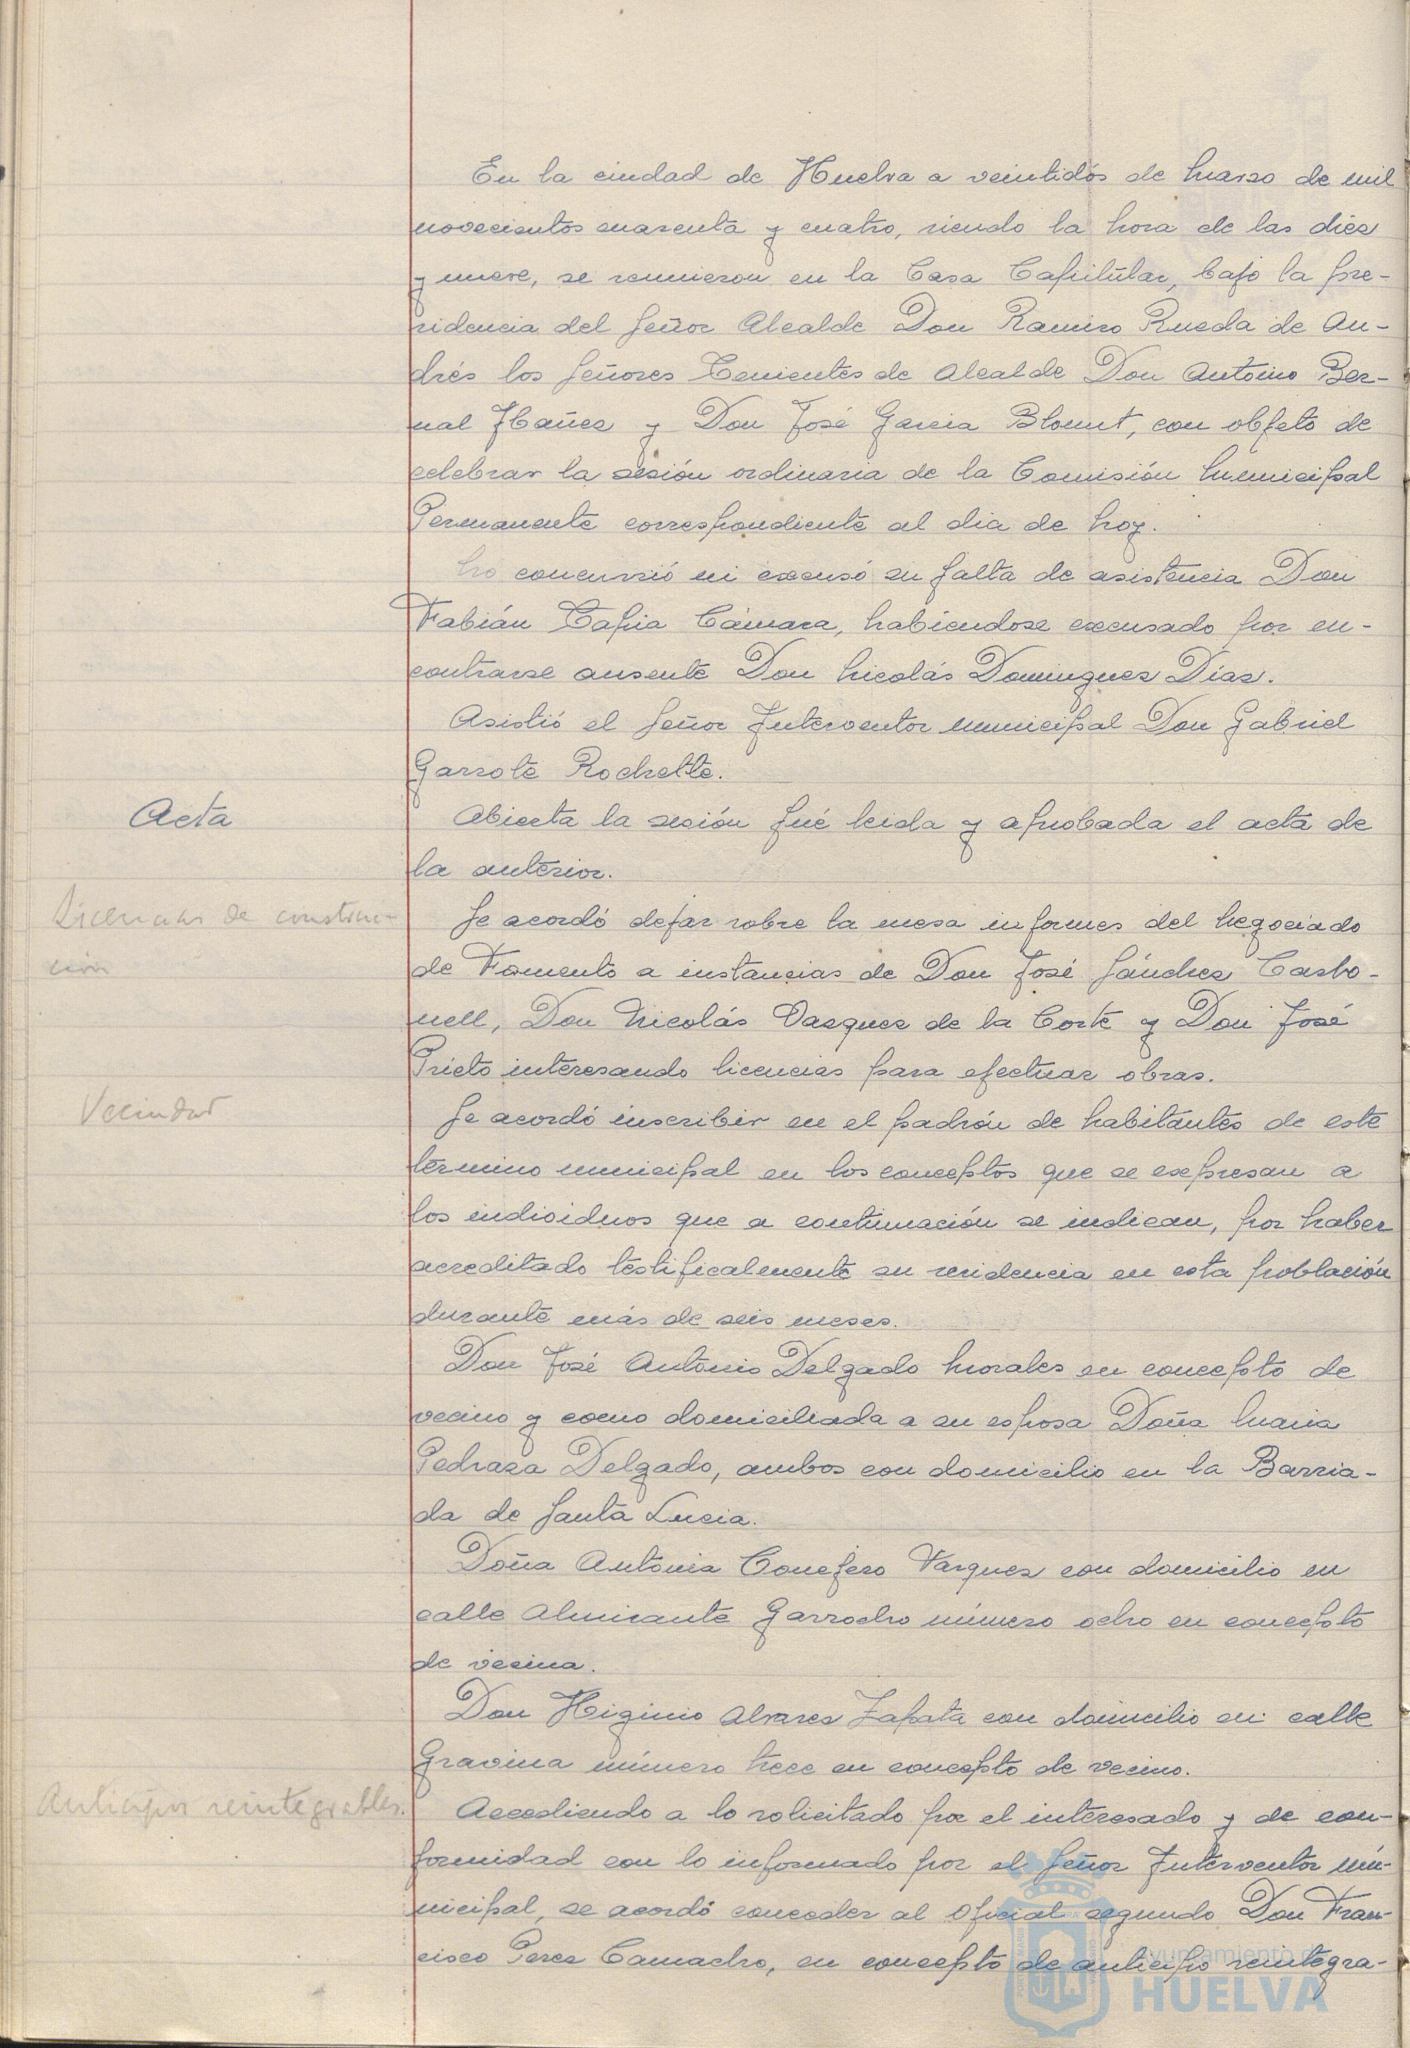 En la ciudad de Huelva a veintidós de Marzo de mil
novecientos cuarenta y cuatro, siendo la hora de las diez
y nueve, se reunieron en la Casa Capitular, bajo la pre-
sidencia del Señor Alcalde Don Ramiro Rueda de An-
drés los Señores Tenientes de Alcalde Don Antonio Ber-
nal Ibañez y Don José Garcia Blomut, con objeto de
celebrar la sesión ordinaria de la Comisión Municipal
Permanente correspondiente al dia de hoy.
No concurrió ni excusó su falta de asistencia Don
Fabián Tapia Cámara, habiendose excusado por en-
contrarse ausente Don Nicolás Dominguez Díaz.
Asistió el Señor Interventor municipal Don Gabriel
Garrote Rochette.
Acta
Abierta la sesión fué leida y aprobada el acta de
la anterior.
Licencias de construc-
ción
Se acordó dejar sobre la mesa informes del Negociado
de Fomento a instancias de Don José Sánchez Carbo-
nell, Don Nicolás Vazquez de la Corte y Don José
Prieto interesando licencias para efectuar obras.
Vecindad
Se acordó inscribir en el padrón de habitantes de este
término municipal en los conceptos que se expresan a
los individuos que a continuación se indican, por haber
acreditado testificalmente su residencia en esta población
durante más de seis meses.
Don José Antonio Delgado Morales en concepto de
vecino y como domiciliada a su esposa Doña Maria
Pedraza Delgado, ambos con domicilio en la Barria-
da de Santa Lucia.
Doña Antonia Conejero Vazquez con domicilio en
calle Almirante Garrocho número ocho en concepto
de vecina.
Don Higinio Alvarez Zapata con domicilio en calle
Gravina número trece en concepto de vecino.
Anticipos reintegrables.
Accediendo a lo solicitado por el interesado y de con-
formidad con lo informado por el Señor Interventor mu-
nicipal, se acordó conceder al Oficial segundo Don Fran-
cisco Perez Camacho, en concepto de anticipo reintegra-
Ayuntamiento de
HUELVA